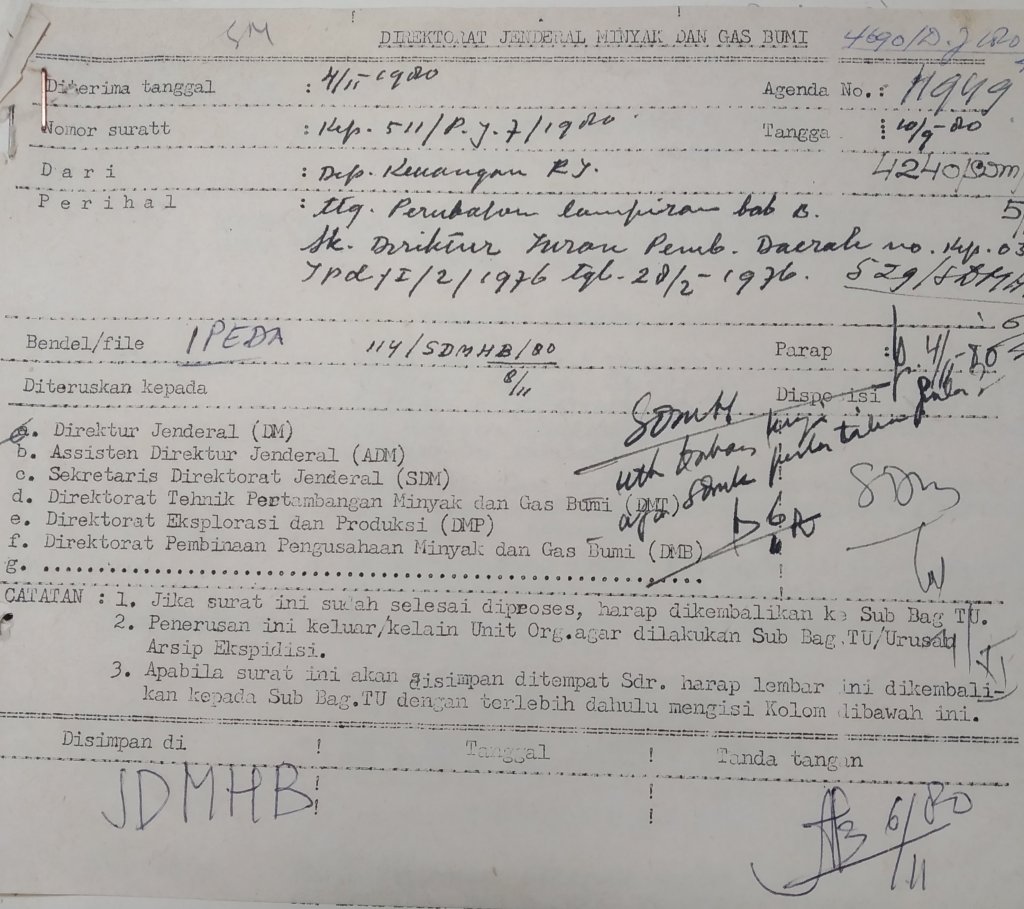 SM DIREKTORAT JENDERAL MINYAK DAN GAS BUMI 4690/D.J/80
Diterima tanggal : 4/11-1980 Agenda No.: 11949
Nomor suratt : Kep. 511/P.J.7/1980 Tangga : 10/9-80
D a r i : Dep. Keuangan R.I. 4240/SDM/
P e r i h a l : ttg. Perubahan lampiran bab B. 5/
Sk. Direktur Iuran Pemb. Daerah no. Kep. 03
Ipd/I/2/1976 tgl. 28/2-1976. 529/SDMH
Bendel/file IPEDA 114/SDMHB/80 Parap : 4/11-80
8/11
Diteruskan kepada Dispo isi
SDMH
a. Direktur Jenderal (DM)
b. Assisten Direktur Jenderal (ADM)
c. Sekretaris Direktorat Jenderal (SDM)
d. Direktorat Tehnik Pertambangan Minyak dan Gas Bumi (DMT)
e. Direktorat Eksplorasi dan Produksi (DMP)
f. Direktorat Pembinaan Pengusahaan Minyak dan Gas Bumi (DMB)
g. ..................................................
SDM
CATATAN : 1. Jika surat ini sudah selesai diproses, harap dikembalikan ke Sub Bag TU.
2. Penerusan ini keluar/kelain Unit Org.agar dilakukan Sub Bag.TU/Urusan
Arsip Ekspidisi.
3. Apabila surat ini akan disimpan ditempat Sdr. harap lembar ini dikembali-
kan kepada Sub Bag.TU dengan terlebih dahulu mengisi Kolom dibawah ini.
Disimpan di ! Tanggal ! Tanda tangan
JDMHB 6/80
11